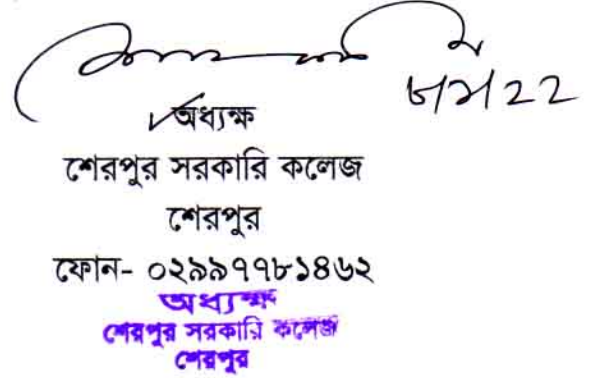 অধ্যক্ষ
শেরপুর সরকারি কলেজ
শেরপুর
ফোন- ০২৯৯৭৭৮১৪৬২
অধ্যক্ষ
শেরপুর সরকারি কলেজ
শেরপুর